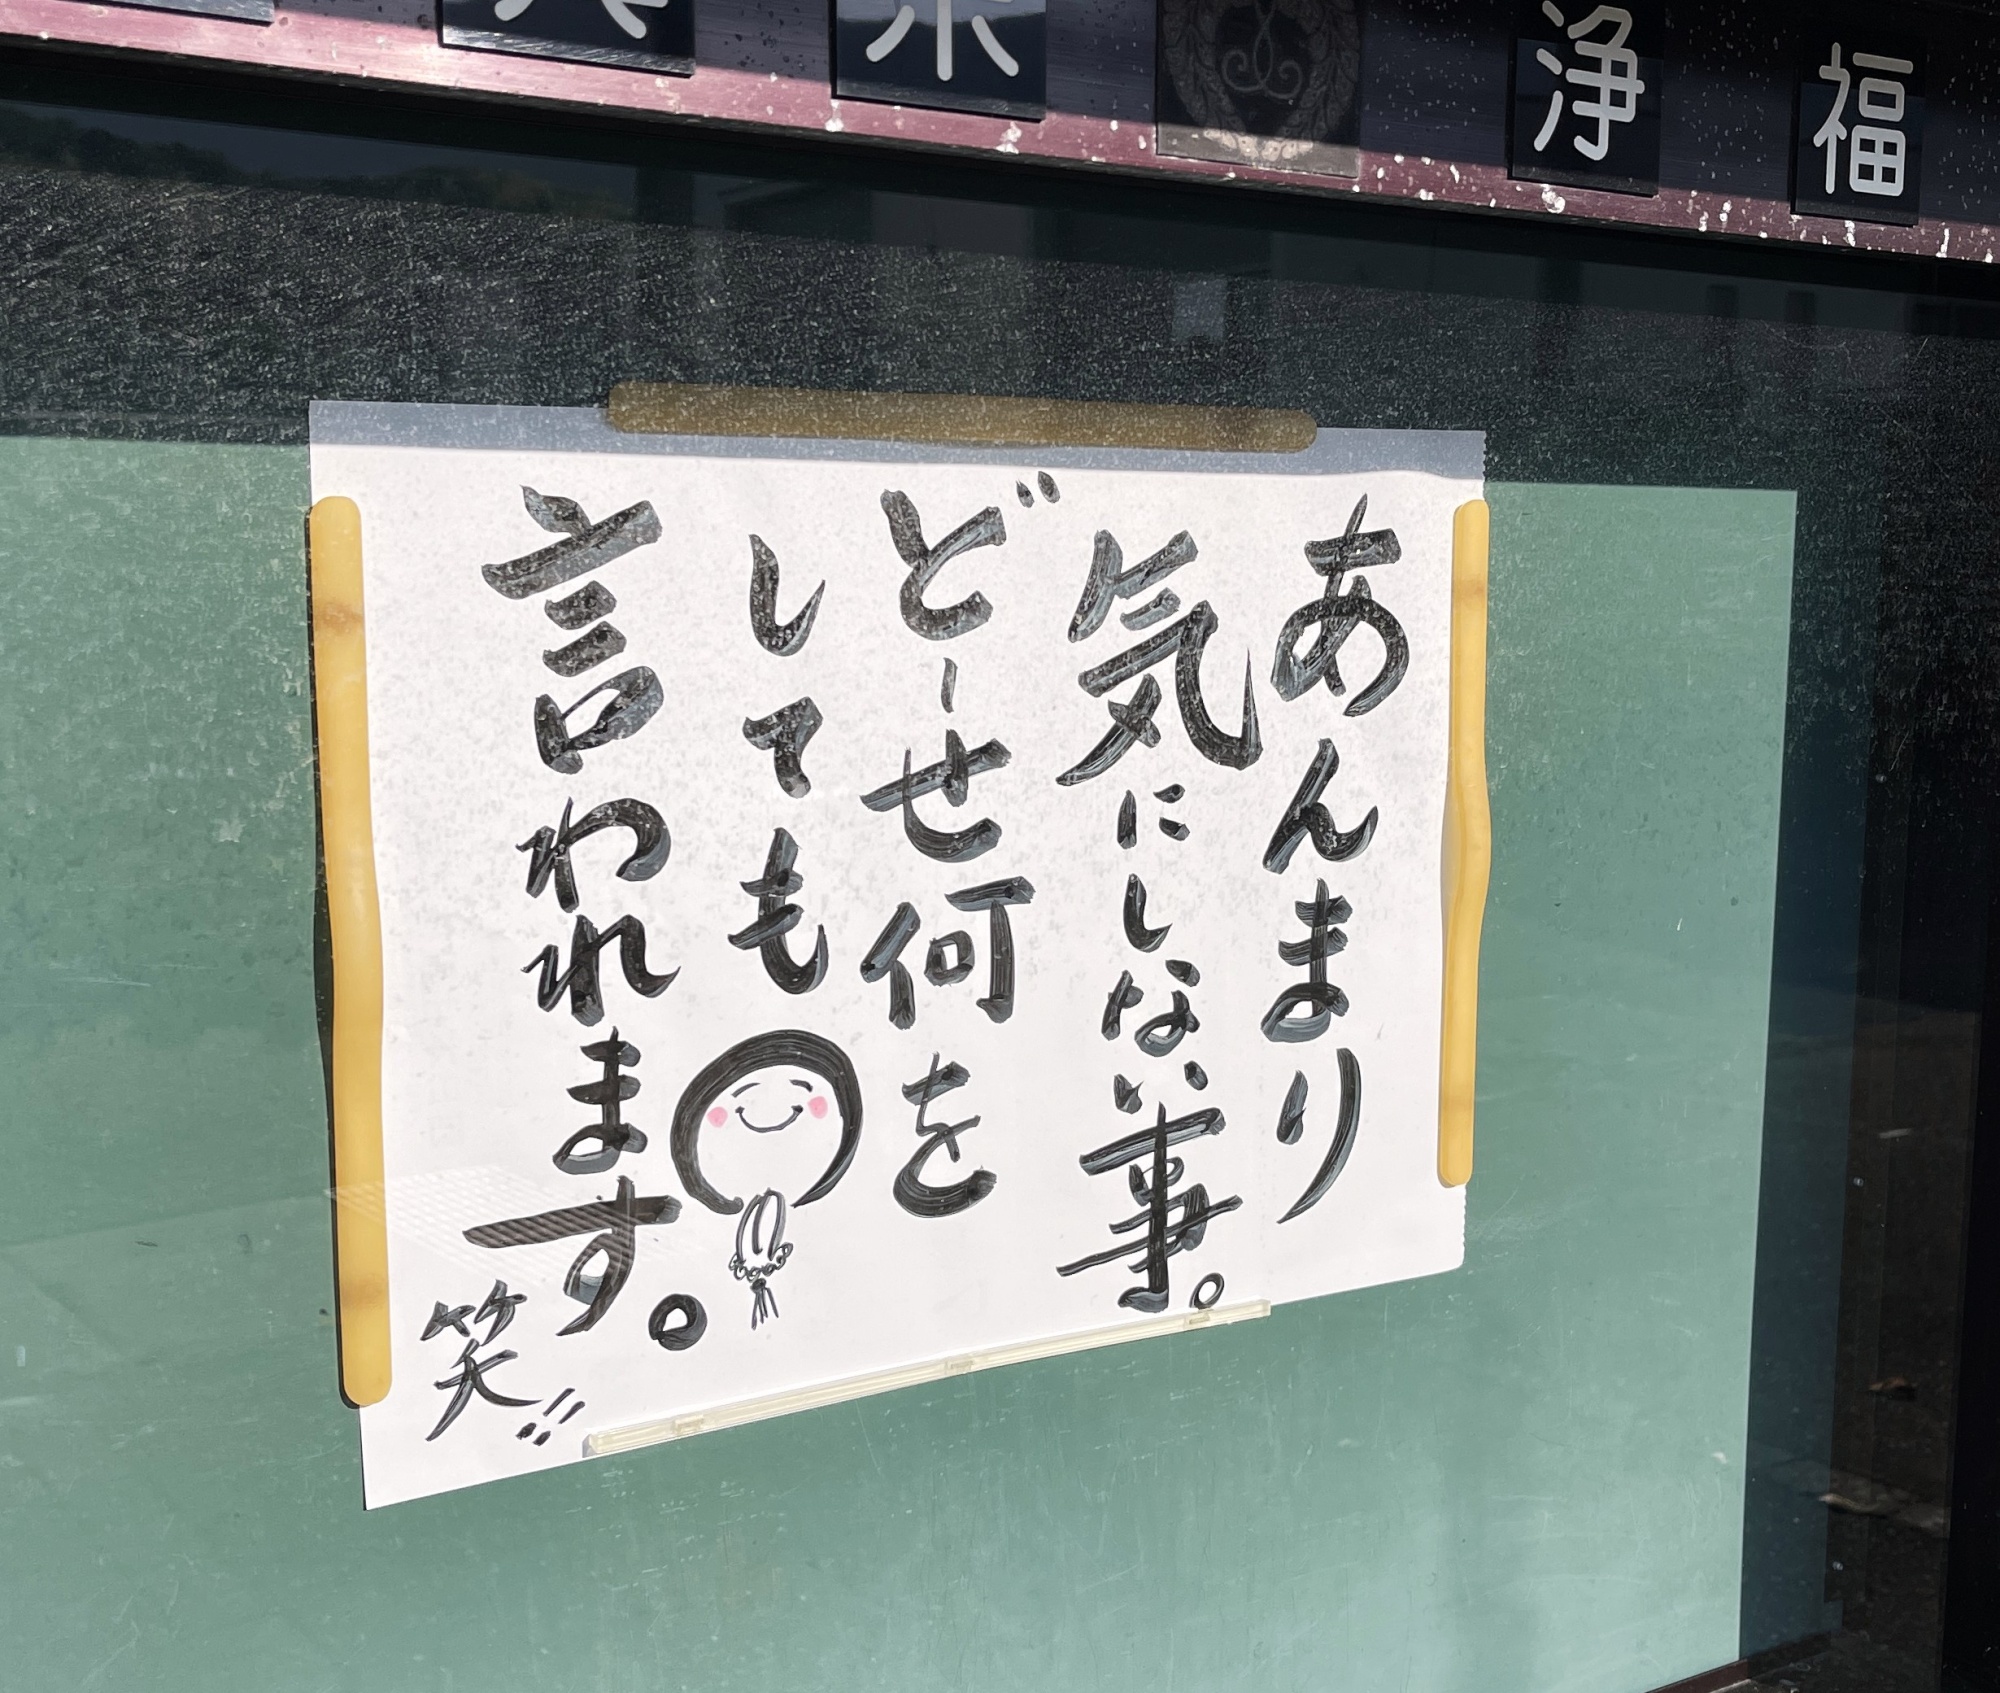 福浄
あんまり
気にしない事。
どーせ何を
しても
言われます。
笑!!